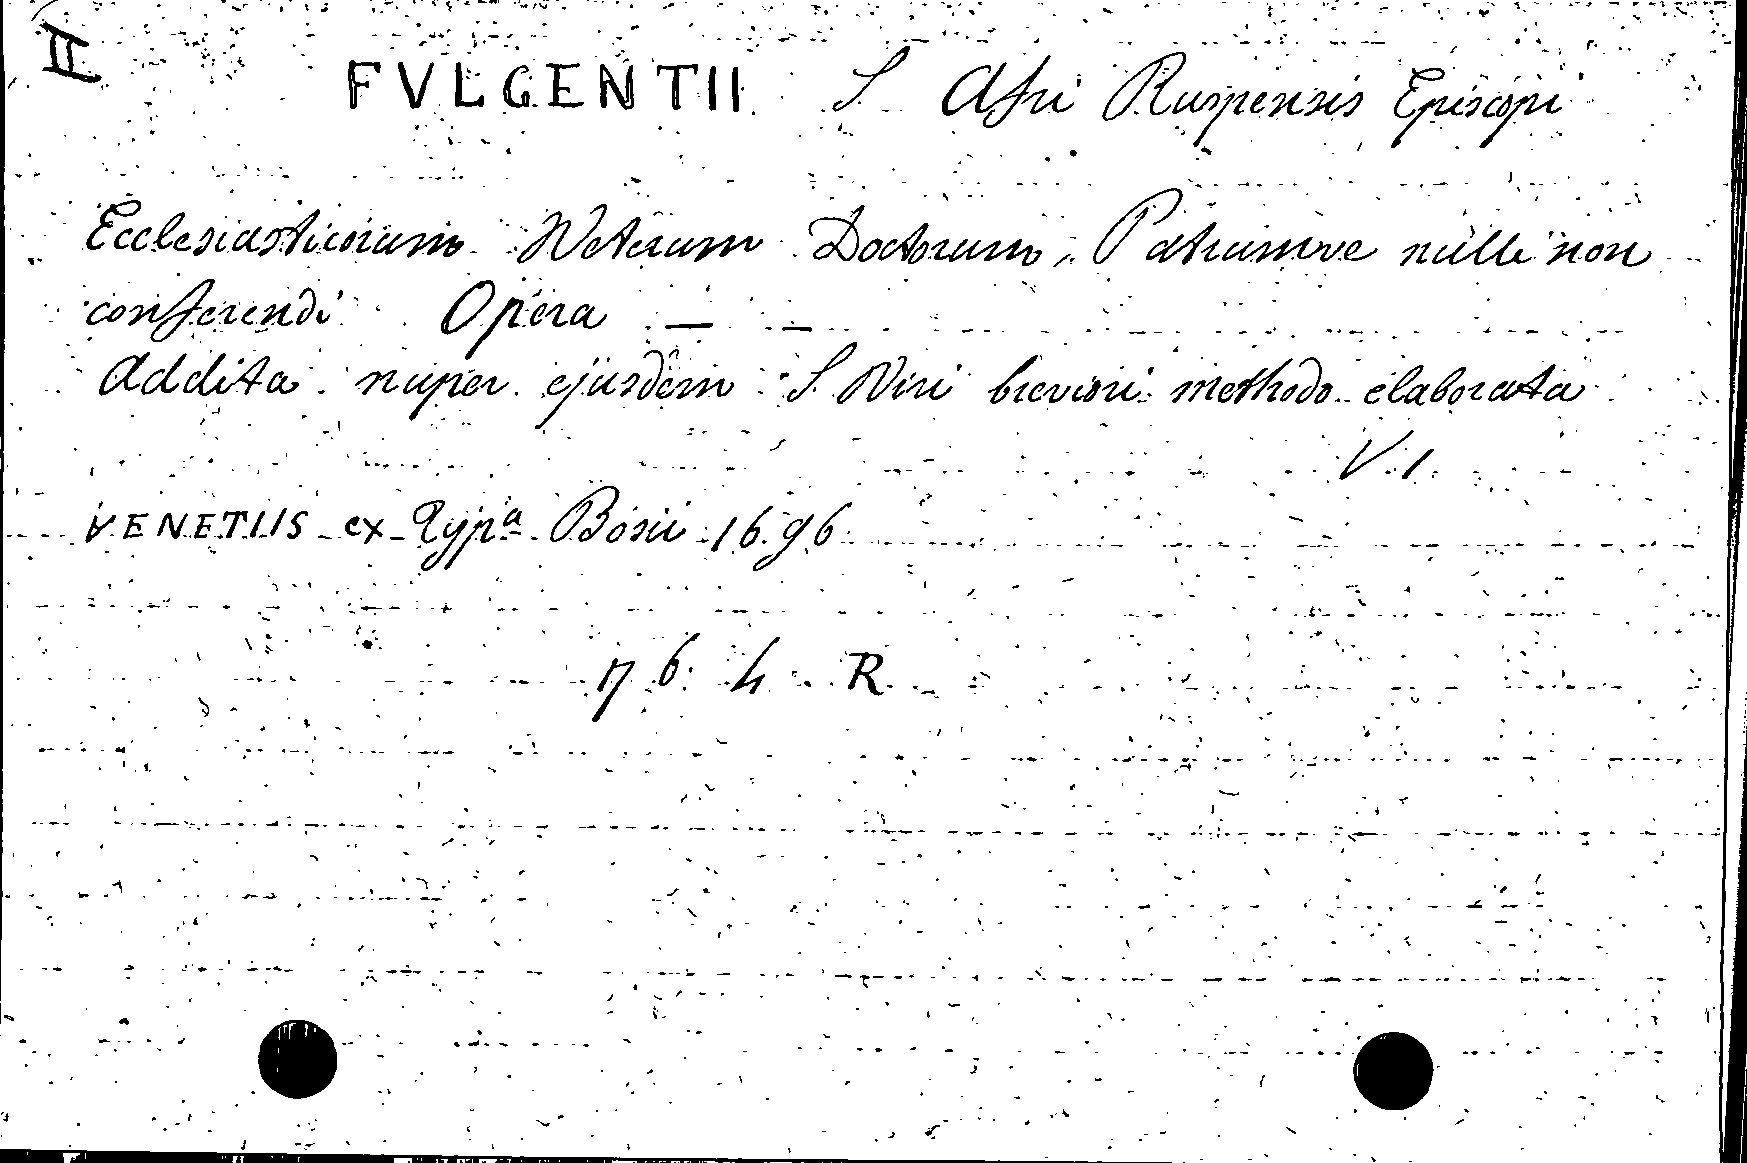 II
FVLGENTII S. Afri Ruspensis Episcopi
Ecclesiasticorum Veterum Doctorum, Patrumve nulli non
conferendi Opera — —
Addita nuper ejusdem S. Viri breviori methodo elaborata
V. 1.
VENETIIS ex Typª Bosii 1696
76. 4. R